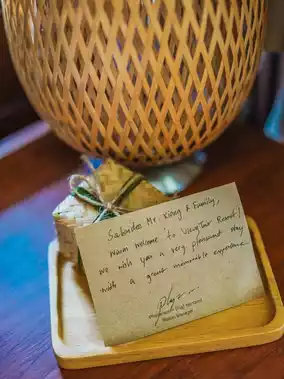 Sabaidee Mr. Xiong & Family,
Warm welcome to Vang Tavr Resort!
We wish you a very pleasant stay
with a great memorable experience